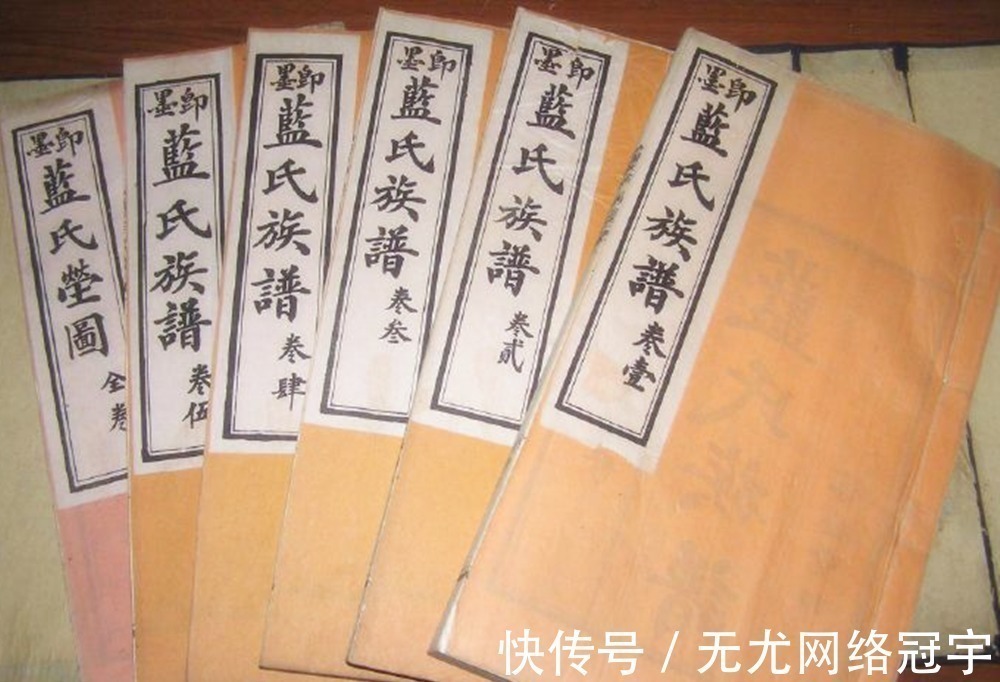 即墨
藍氏族譜 卷壹
即墨
藍氏族譜 卷貳
即墨
藍氏族譜 卷叁
即墨
藍氏族譜 卷肆
即墨
藍氏族譜 卷伍
即墨
藍氏塋圖 全卷
快传号 / 无尤网络冠宇